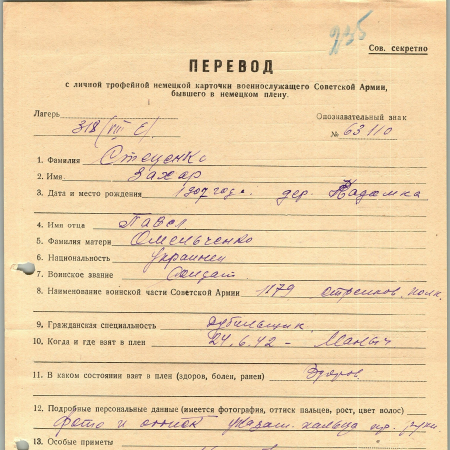 235
Сов. секретно
ПЕРЕВОД
с личной трофейной немецкой карточки военнослужащего Советской Армии,
бывшего в немецком плену.
Лагерь Опознавательный знак
318 (VIII E). № 63110
1. Фамилия Стеценко
2. Имя Захар
3. Дата и место рождения 1907 года. дер. Кадомка
4. Имя отца Павел
5. Фамилия матери Омельченко
6. Национальность Украинец
7. Воинское звание Солдат.
8. Наименование воинской части Советской Армии 1179 стрелков. полк.
9. Гражданская специальность Дубильщик.
10. Когда и где взят в плен 24.6.42 - Маныч
11. В каком состоянии взят в плен (здоров, болен, ранен) Здоров.
12. Подробные персональные данные (имеется фотография, оттиск пальцев, рост, цвет волос)
Фото и оттиск указат. пальца пр. руки
13. Особые приметы